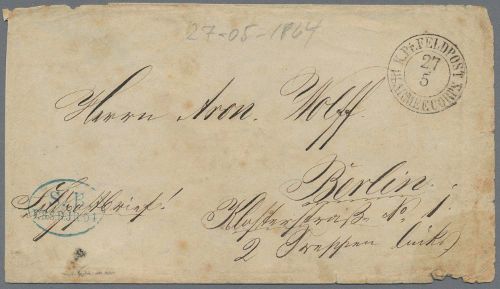 27-05-1864
K.Pr.FELDPOST
27
5
ARMEECORPS
Herrn Aron. Wolff.
Berlin.
Klosterstraße No 1.
2 Treppen links